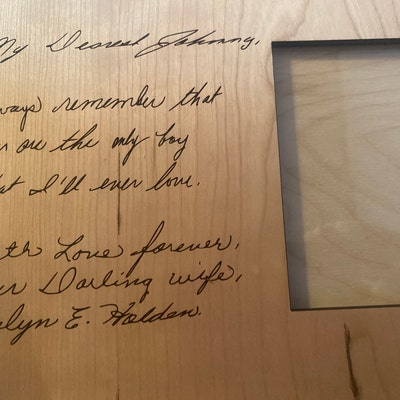 My Dearest Johnny,
ways remember that
are the only boy
I'll ever love.
Love forever,
Darling wife,
lyn E. Holden.